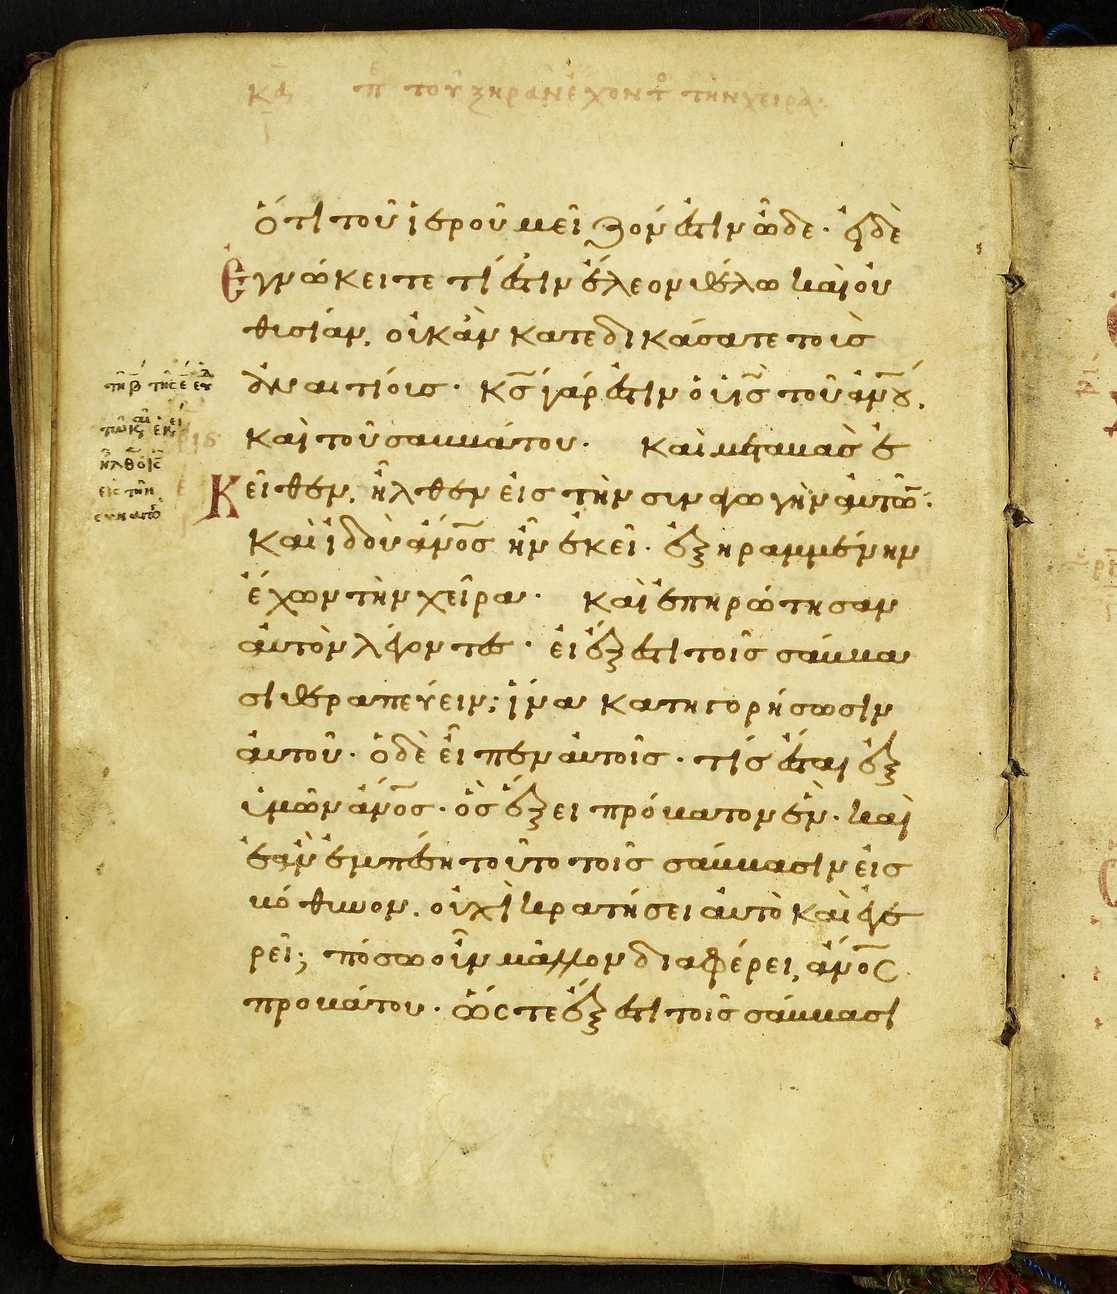 κα π του ξηραν εχοντ την χειρα
ὅτι τοῦ ἱεροῦ μεῖζόν ἐστιν ὧδε· εἰ δὲ
ἐγνώκειτε τί ἐστιν ἔλεον θέλω καὶ οὐ
θυσίαν, οὐκ ἂν κατεδικάσατε τοὺς
ἀναιτίους· κς̅ γάρ ἐστιν ὁ υἱς̅ τοῦ ἀνου̅,
καὶ τοῦ σαββάτου· καὶ μεταβὰς ἐ
κεῖθεν, ἦλθεν εἰς τὴν συναγωγὴν αὐτῶν·
καὶ ἰδοὺ ἀνο̅ς ἦν ἐκεῖ· ἐξηραμμένην
ἔχων τὴν χεῖρα· καὶ ἐπηρώτησαν
αὐτὸν λέγοντες· εἰ ἔξεστι τοῖς σάββα
σι θεραπεύειν; ἵνα κατηγορήσωσιν
αὐτοῦ· ὁ δὲ εἶπεν αὐτοῖς· τίς ἔσται ἐξ
ὑμῶν ἀνο̅ς· ὃς ἕξει πρόβατον ἕν· καὶ
ἐὰν ἐμπέση τοῦτο τοῖς σάββασιν εἰς
βόθυνον, οὐχὶ κρατήσει αὐτὸ καὶ ἐγε
ρεῖ; πόσω οὖν μᾶλλον διαφέρει, ἀνο̅ς
προβάτου· ὥστε ἔξεστι τοῖς σάββασι
ἦλθ ὁ ις̅
εἰς τὴν